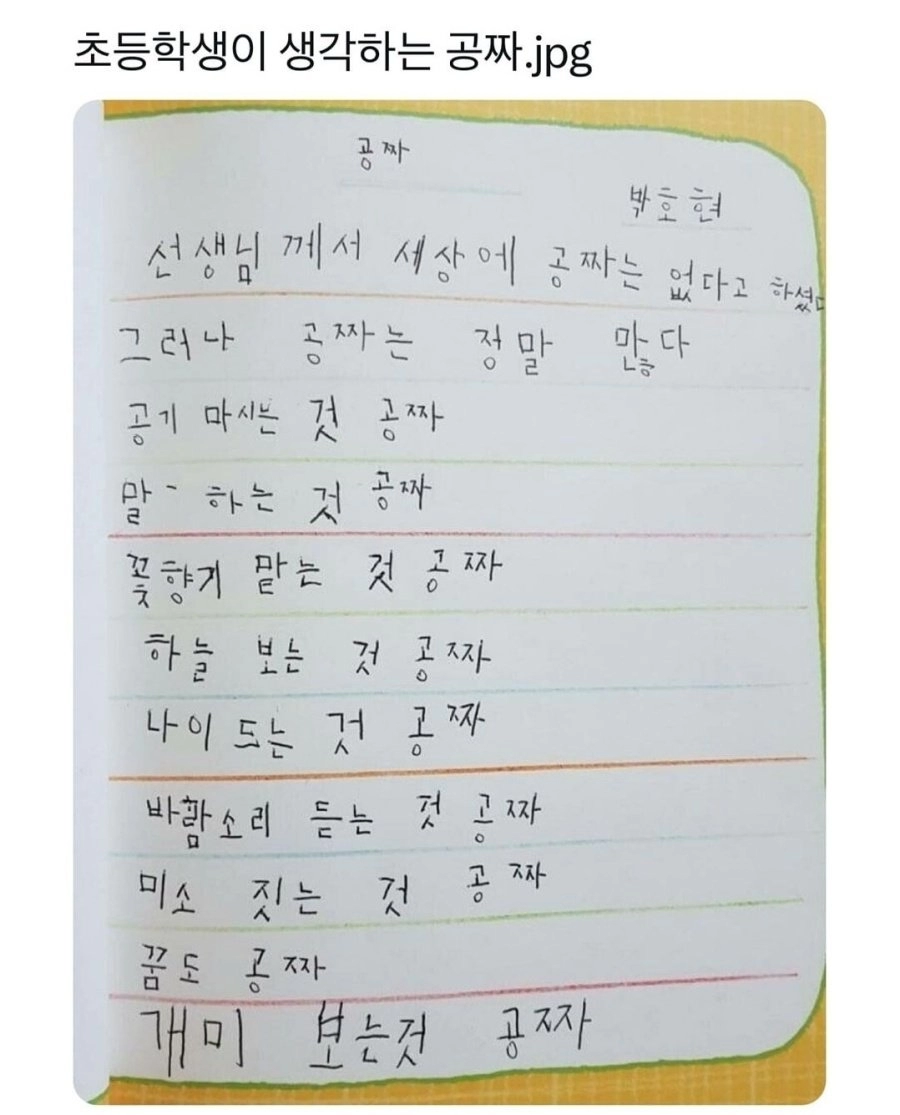 초등학생이 생각하는 공짜.jpg
공짜
박호현
선생님께서 세상에 공짜는 없다고 하셨다
그러나 공짜는 정말 많다
공기 마시는 것 공짜
말 하는 것 공짜
꽃향기 맡는 것 공짜
하늘 보는 것 공짜
나이 드는 것 공짜
바람소리 듣는 것 공짜
미소 짓는 것 공짜
꿈도 공짜
개미 보는것 공짜